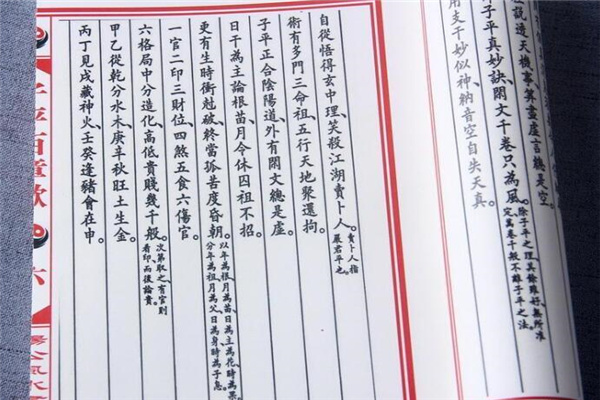 說透天機事、算盡虛言總是空。
子平真妙訣、閑文千卷只為風。除子平之理、其餘雖好、無所准定、萬卷千般不離子平之法。
用支干妙似神、納音空自失天真。
自從悟得玄中理、笑殺江湖賣卜人。賣卜人指嚴君平也。
術有多門三命祖、五行天地聚還拘。
子平正合陰陽道、外有閑文總是虛。
日干為主論根苗、月令休囚祖不招。
更有生時衝尅破、終當孤苦度昏朝。以年為根、月為苗、日為主為花、時為果。分年為祖、月為父、日為身、時為子息。
一官二印三財位、四煞五食六傷官。
六格局中分造化、高低貴賤幾千般。次第取之、有官則看印、而後論貴。
甲乙從乾分水木、庚辛秋旺土生金。
丙丁見戌藏神火、壬癸逢豬會在申。
六